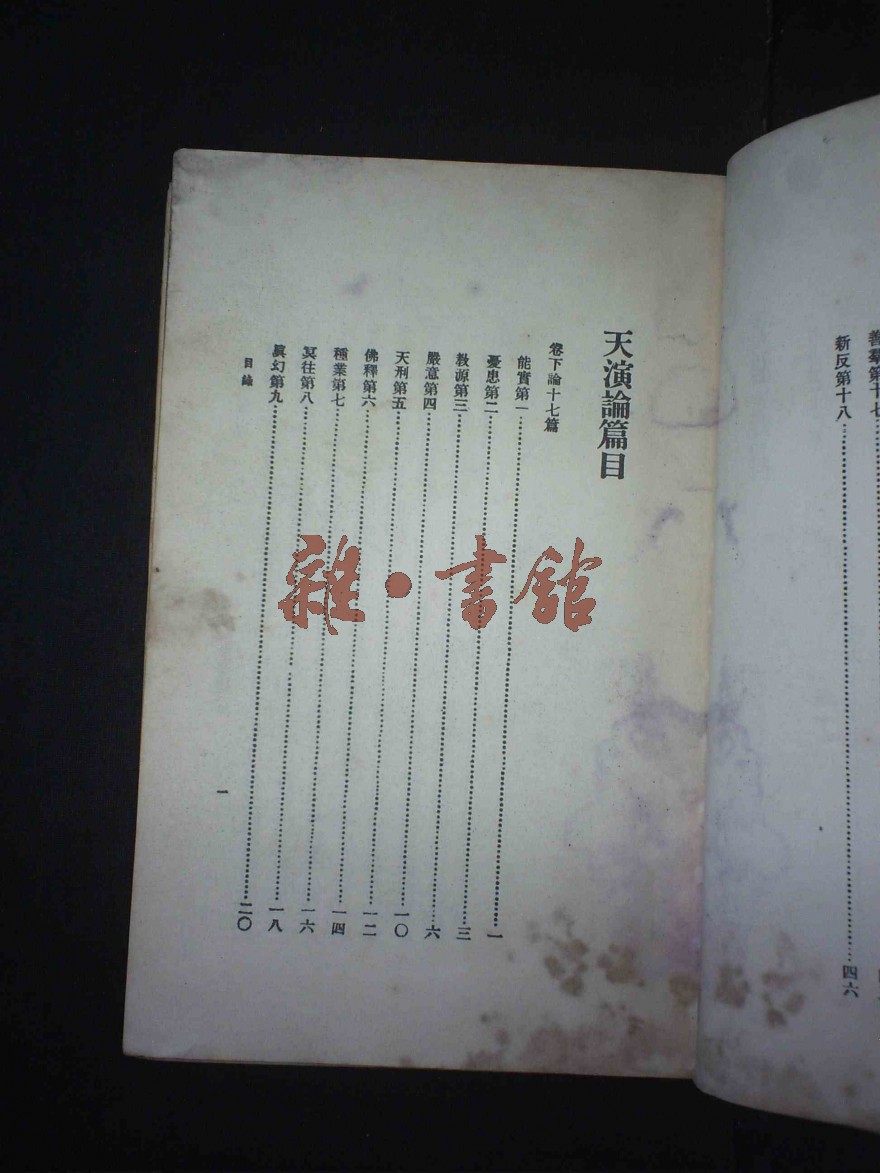 善羣第十七
新反第十八……四六
天演論篇目
卷下論十七篇
能實第一……一
憂患第二……三
教源第三……六
嚴意第四……一〇
天刑第五……一二
佛釋第六……一四
種業第七……一六
冥往第八……一八
眞幻第九……二〇
目錄
一
雜·書館